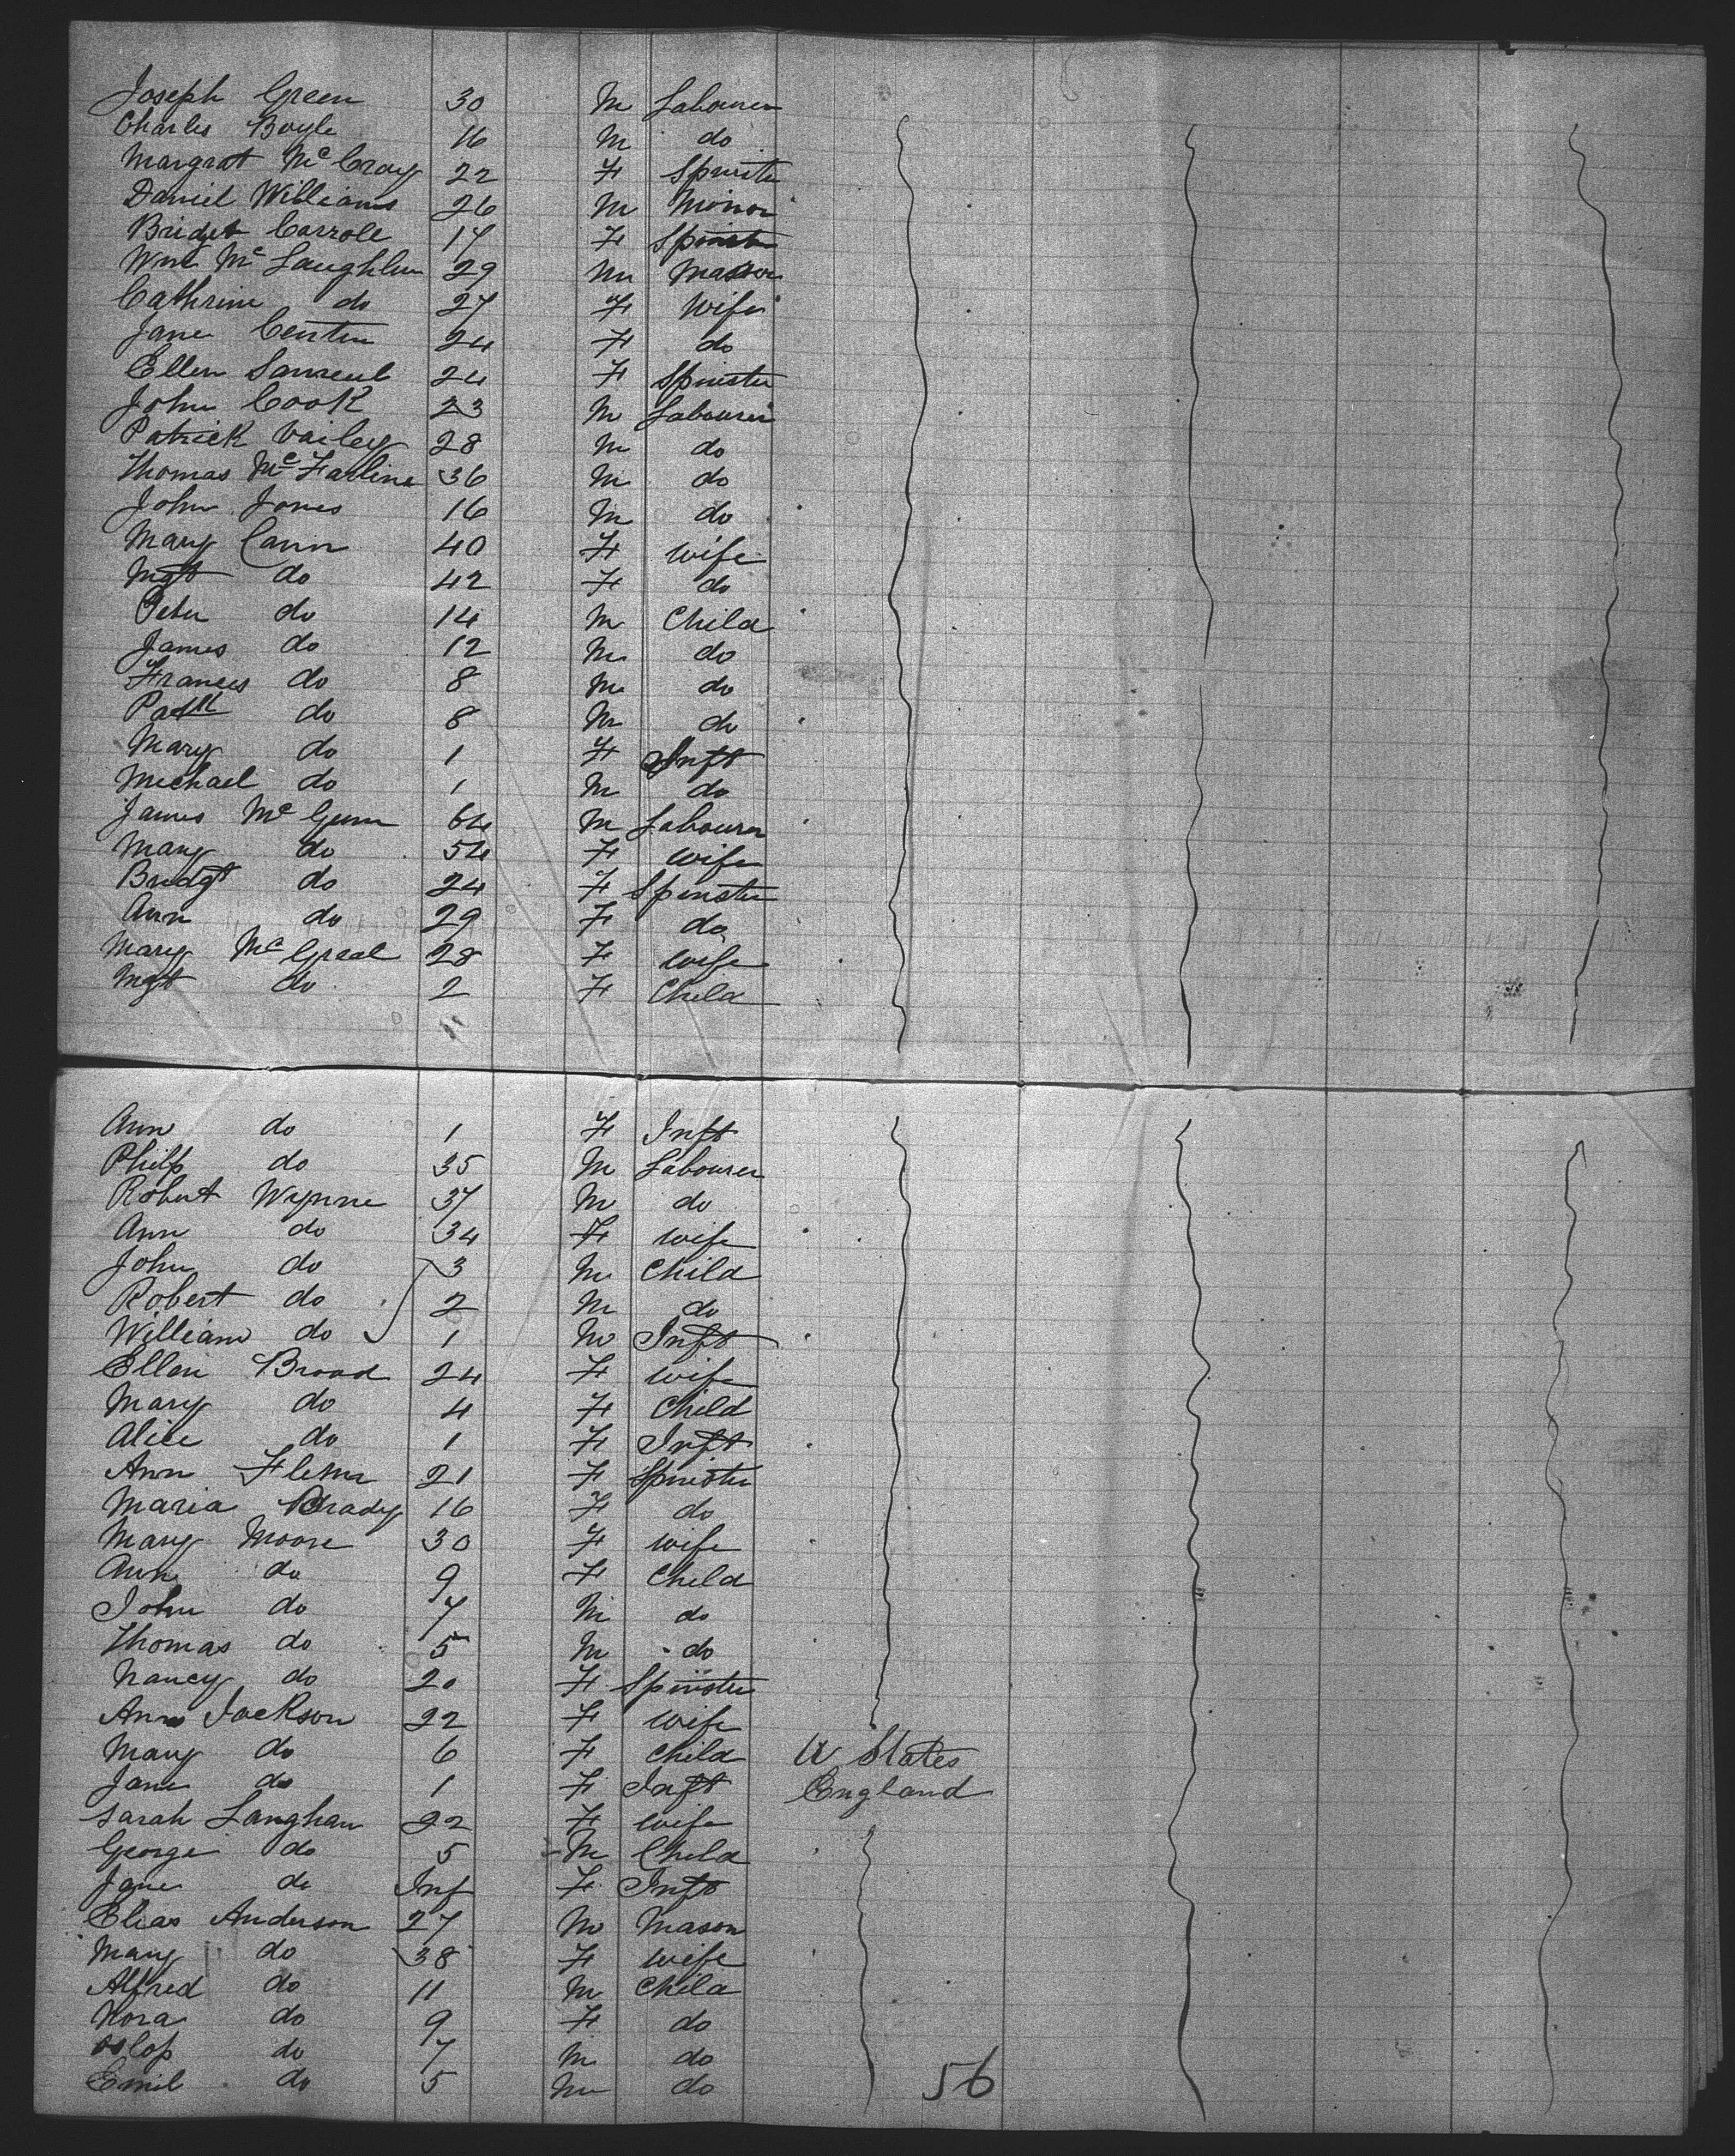 Joseph Green 30 M Labourer
Charles Boyle 16 M do
Margrat Mc Cray 22 F Spinster
Daniel Williams 26 M Minor
Bridget Carroll 17 F Spinster
Wm Mc Laughlin 29 M Mason
Cathrine do 27 F Wife
Jane 24 F do
Ellen 24 F Spinster
John Cook 23 M Labourer
Patrick Vailey 28 M do
Thomas Mc Farline 36 M do
John Jones 16 M do
Mary Cann 40 F Wife
Mgt do 42 F do
Peter do 14 M Child
James do 12 M do
Frances do 8 M do
Patk do 8 M do
Mary do 1 F Inft
Michael do 1 M do
James Mc Gunn 64 M Labourer
Mary do 54 F Wife
Bridgt do 24 F Spinster
Ann do 29 F do
Mary Mc Greal 28 F Wife
Mgt do 2 F Child
Ann do 1 F Inft
Philp do 35 M Labourer
Robert Wynne 37 M do
Ann do 34 F Wife
John do 3 M Child
Robert do 2 M do
William do 1 M Inft
Ellen Broad 24 F Wife
Mary do 4 F Child
Alice do 1 F Inft
Ann 21 F Spinster
Maria Brady 16 F do
Mary Moore 30 F Wife
Ann do 9 F Child
John do 7 M do
Thomas do 5 M do
Nancy do 20 F Spinster
Ann Jackson 22 F Wife
Mary do 6 F Child U States
Jane do 1 F Inft England
Sarah Langhan 22 F Wife
George do 5 M Child
Jane do Inf F Inft
Elias Anderson 27 M Mason
Mary do 38 F Wife
Alfred do 11 M Child
Nora do 9 F do
Oslop do 7 M do
Emil do 5 M do
56